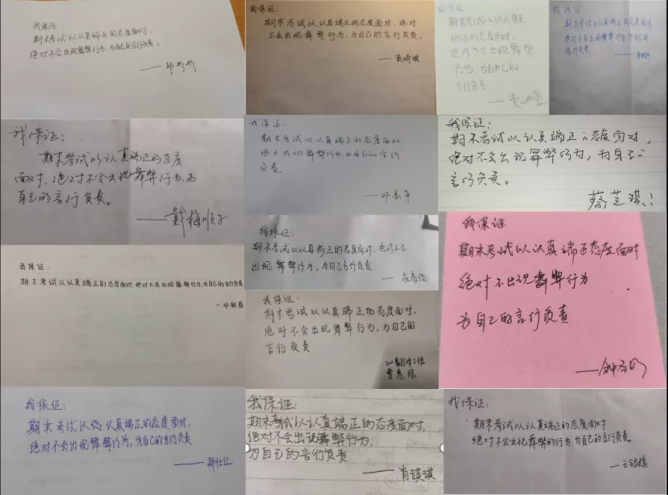 我保证:
期末考试以认真端正的态度面对,
绝对不会出现舞弊行为,为自己言行负责
我保证:
期末考试以认真端正的态度面对,绝对
不会出现舞弊行为,为自己的言行负责.
我保证:
期末考试以认真
端正的态度面对,
绝对不会出现舞弊
行为,为自己的
言行负责
我保证:
期末考试以认真端正的态度面对
我保证:
期末考试以认真端正的态度
面对,绝对不会出现舞弊行为,为
自己的言行负责.
——戴梅顺子
我保证:
期末考试以认真端正的态度面对,
绝不出现舞弊行为,为自己的言行
负责.
我保证:
期末考试以认真端正态度面对,
绝对不会出现舞弊行为,为自己
言行负责。
蔡芝琪!
我保证:
期末考试以认真端正的态度面对,绝对不会
出现舞弊行为,为自己言行负责.
我保证
期末考试以认真端正态度面对
绝对不出现舞弊行为
为自己的言行负责
我保证:
期末考试以认真端正的态度面对,绝对不会出现舞弊行为,为自己的言行负责.
我保证:
期末考试以认真端正的态度面对,
绝对不会出现舞弊行为,为自己的
言行负责
我保证:
期末考试以认真端正的态度面对,
绝对不会出现舞弊行为,为自己的言行负责
我保证:
期末考试以认真端正的态度面对,
绝对不会出现舞弊行为,
为自己的言行负责
——肖琪琪
我保证:
期末考试以认真端正的态度面对
绝对不会出现舞弊的行为,为自己的言行负责.